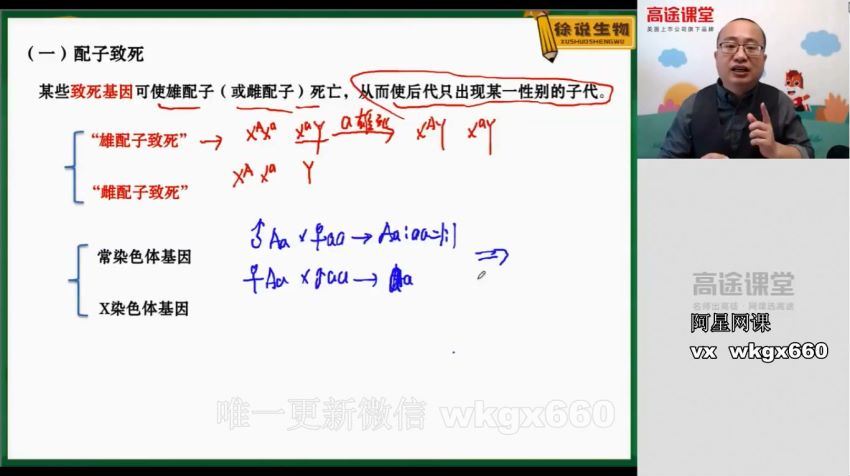 徐说生物
XUSHUOSHENGWU
高途课堂
美股上市公司旗下品牌
（一）配子致死
某些致死基因可使雄配子（或雌配子）死亡，从而使后代只出现某一性别的子代。
“雄配子致死” → XᴬXᵃ XᵃY a雄死 XᴬY XᵃY
“雌配子致死” Xᴬ Xᵃ Y
常染色体基因 ♂Aa×♀aa→Aa:aa=1:1
♀Aa×♂aa→
X染色体基因
高途课堂
名师出高徒·网课选高途
阿星网课
vx wkgx660
唯一更新微信 wkgx660